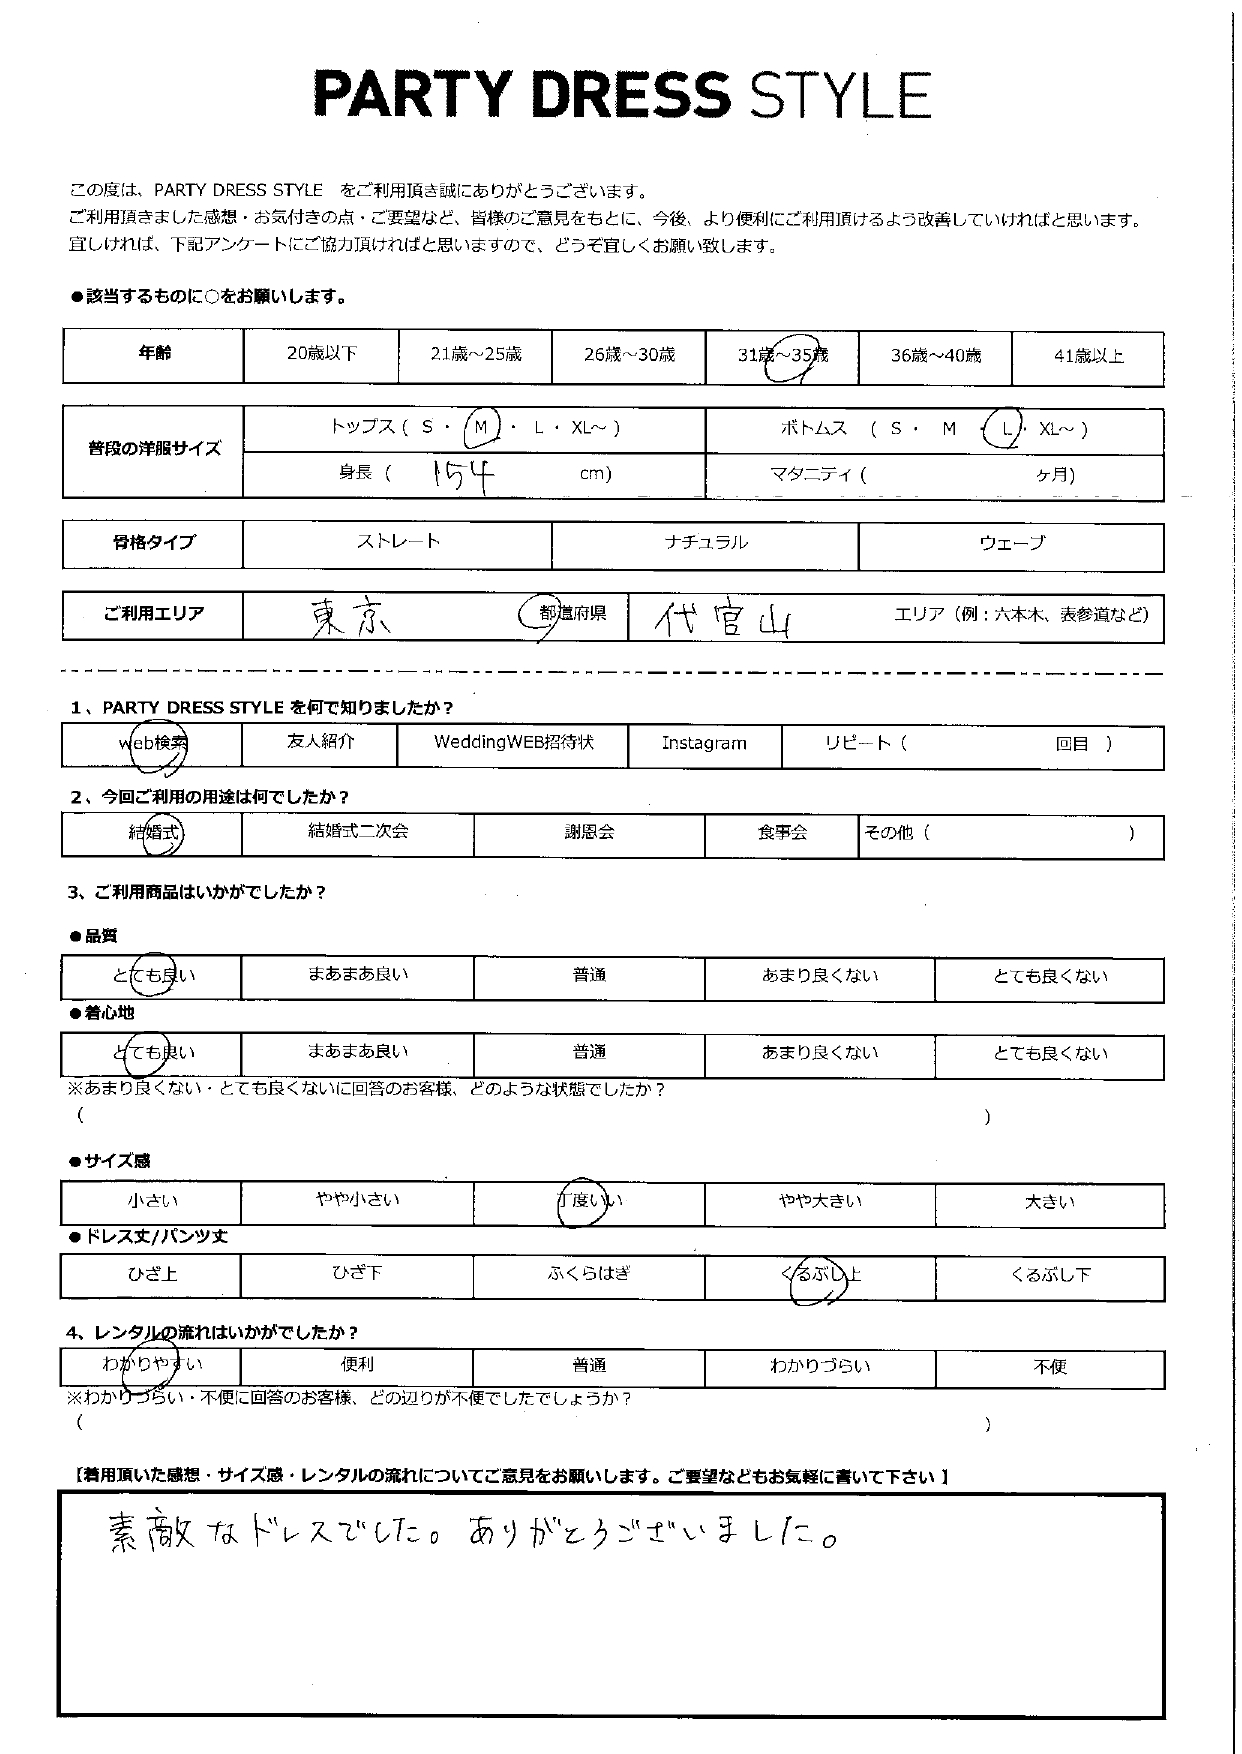 PARTY DRESS STYLE
この度は、PARTY DRESS STYLE をご利用頂き誠にありがとうございます。
ご利用頂きました感想・お気付きの点・ご要望など、皆様のご意見をもとに、今後、より便利にご利用頂けるよう改善していければと思います。
宜しければ、下記アンケートにご協力頂ければと思いますので、どうぞ宜しくお願い致します。
●該当するものに○をお願いします。
年齢 20歳以下 21歳～25歳 26歳～30歳 31歳～35歳 36歳～40歳 41歳以上
普段の洋服サイズ トップス ( S ・ M ・ L ・ XL～ ) ボトムス ( S ・ M ・ L ・ XL～ )
身長 ( 154 cm) マタニティ ( ヶ月)
骨格タイプ ストレート ナチュラル ウェーブ
ご利用エリア 東京 都道府県 代官山 エリア（例：六本木、表参道など）
1、PARTY DRESS STYLE を何で知りましたか？
web検索 友人紹介 WeddingWEB招待状 Instagram リピート ( 回目 )
2、今回ご利用の用途は何でしたか？
結婚式 結婚式二次会 謝恩会 食事会 その他 ( )
3、ご利用商品はいかがでしたか？
●品質
とても良い まあまあ良い 普通 あまり良くない とても良くない
●着心地
とても良い まあまあ良い 普通 あまり良くない とても良くない
※あまり良くない・とても良くないに回答のお客様、どのような状態でしたか？
( )
●サイズ感
小さい やや小さい 丁度いい やや大きい 大きい
●ドレス丈/パンツ丈
ひざ上 ひざ下 ふくらはぎ くるぶし上 くるぶし下
4、レンタルの流れはいかがでしたか？
わかりやすい 便利 普通 わかりづらい 不便
※わかりづらい・不便に回答のお客様、どの辺りが不便でしたでしょうか？
( )
【着用頂いた感想・サイズ感・レンタルの流れについてご意見をお願いします。ご要望などもお気軽に書いて下さい】
素敵なドレスでした。ありがとうございました。